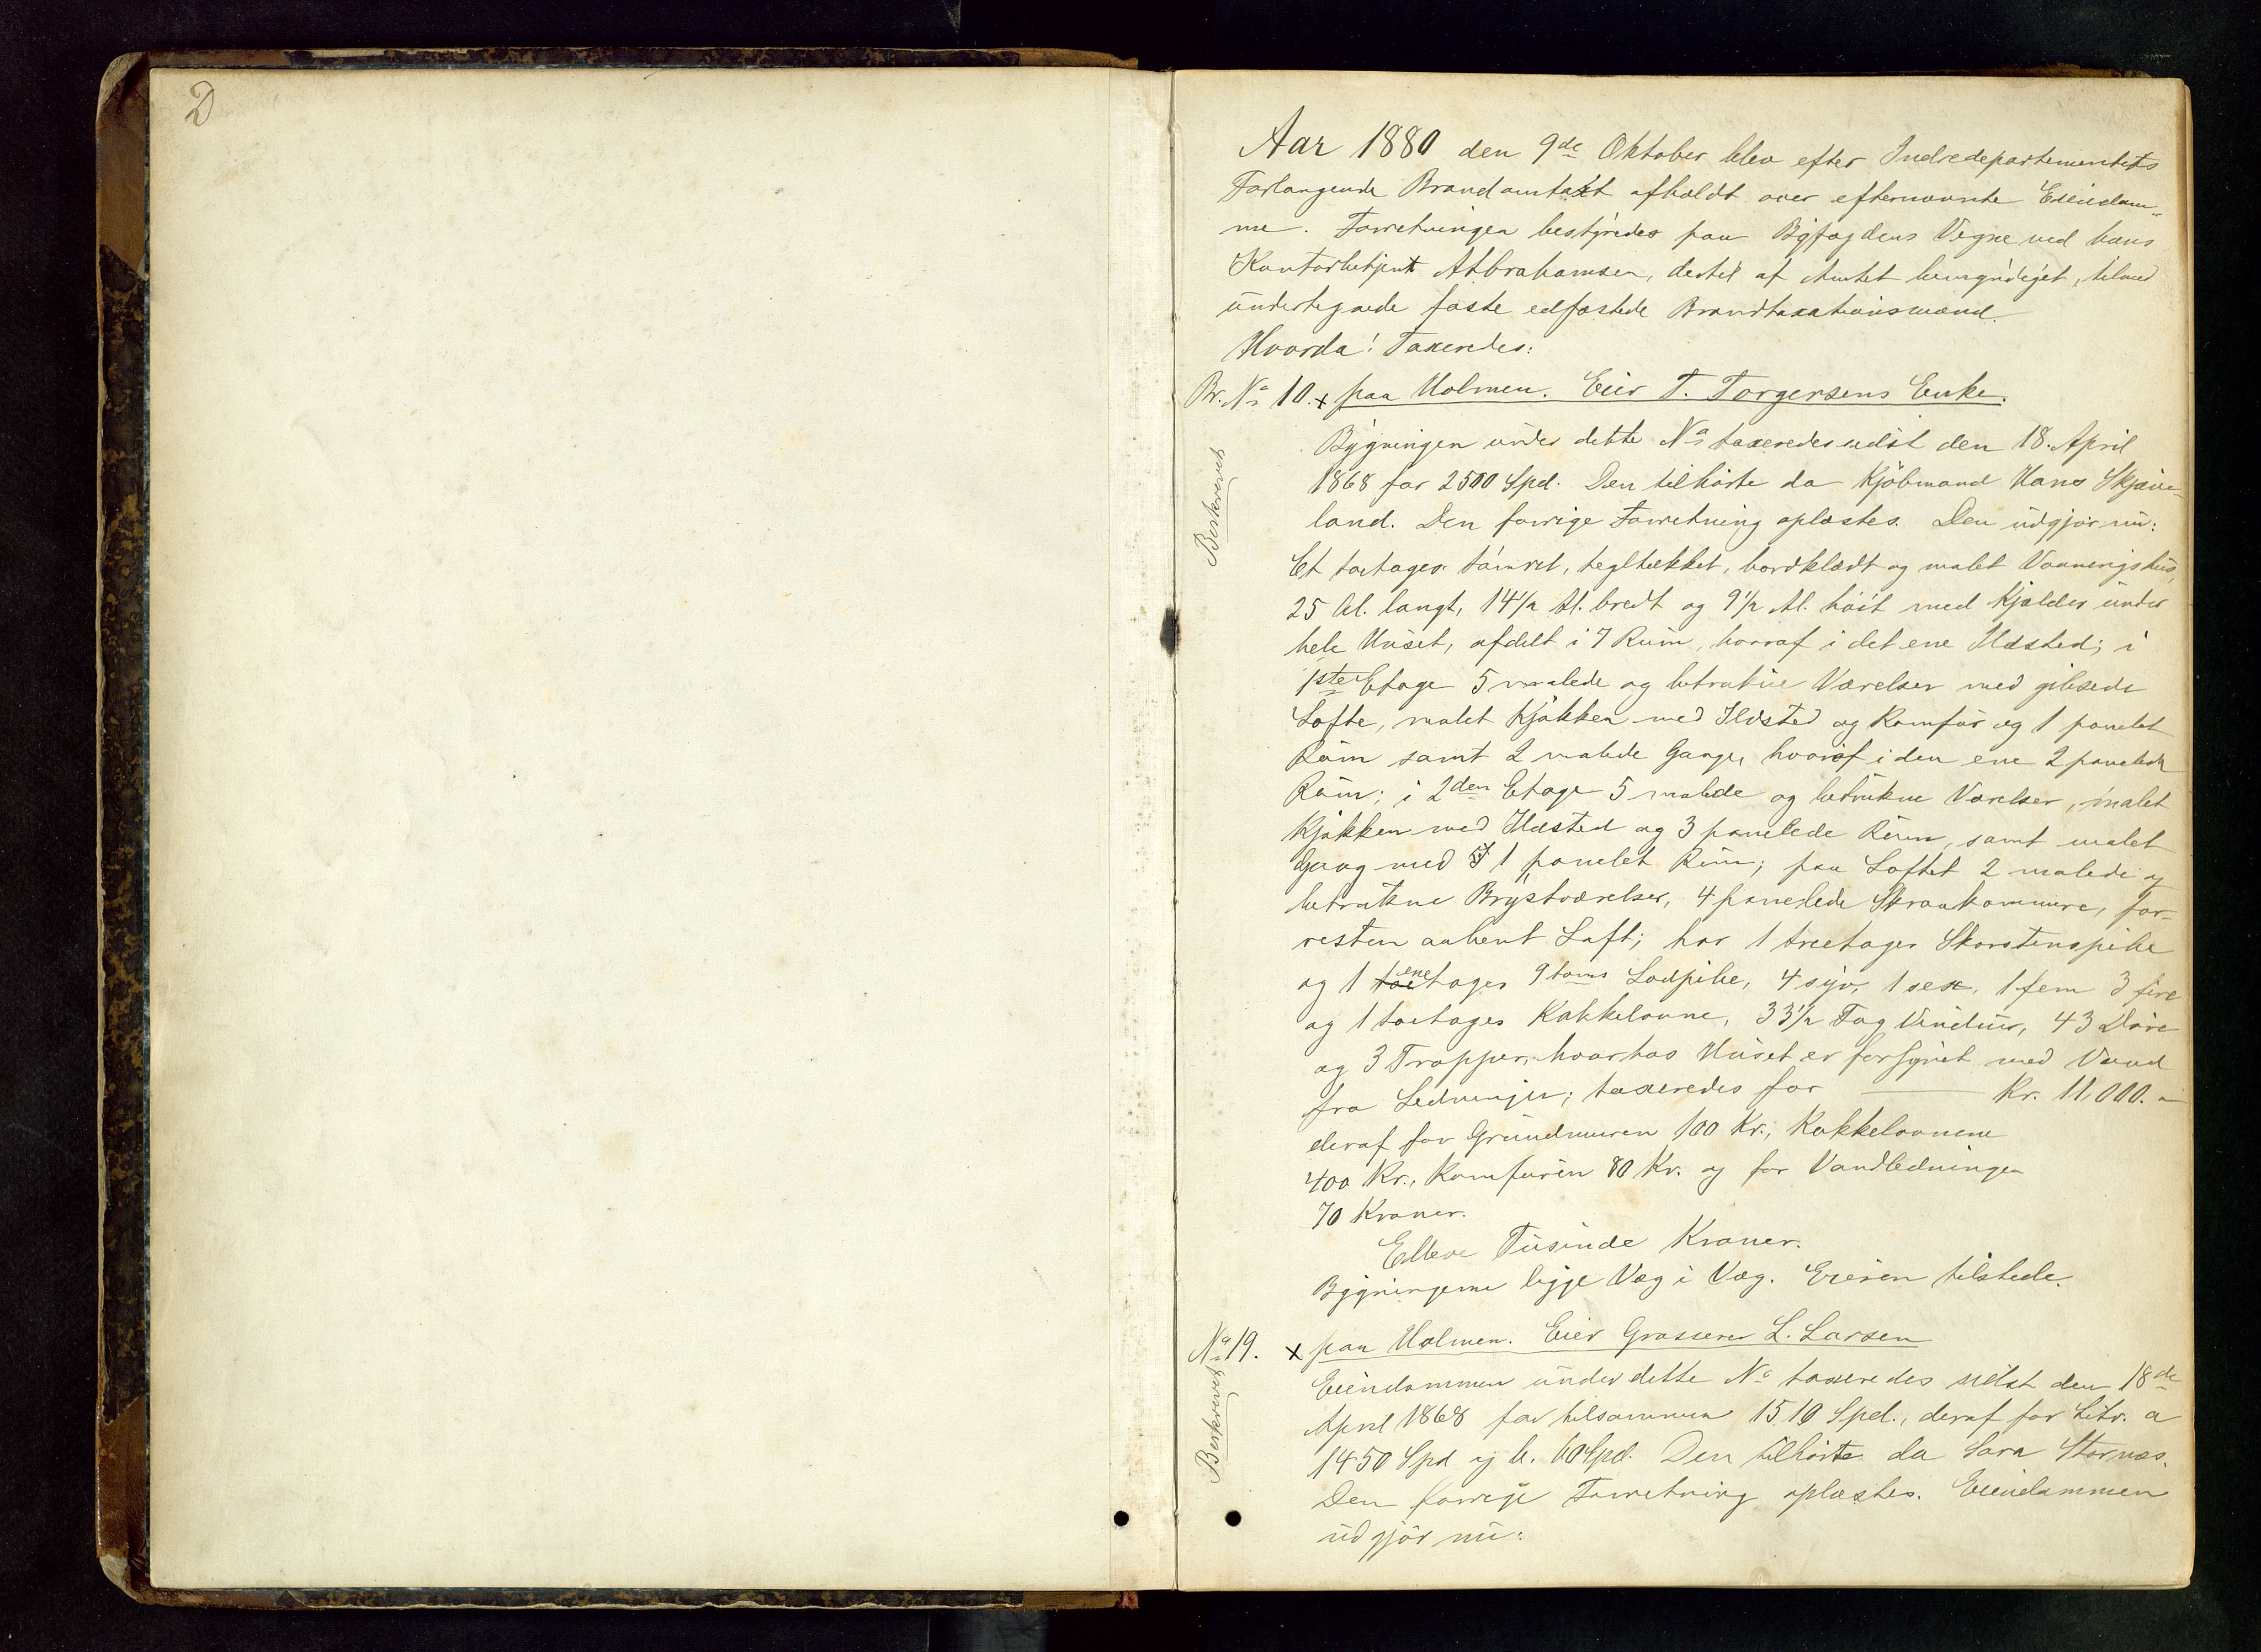 D
Aar 1880 den 9de Oktober blev efter Indredepartementets
Forlangende Brandomtaxt afholdt over efternævnte Eiendom-
me. Forretningen bestyredes paa Byfogdens Vegne ved hans
Kontorbetjent Abrahamsen, dertil af Amtet bemyndiget, tilmed
undertegnede faste edfæstede Brandtaxationsmænd.
Hvorda! Taxeredes:
Br. No 10. x paa Holmen. Eier T. Torgersens Enke.
Beskrevet
Bygningen under dette No taxeredes sidst den 18. April
1868 for 2500 Spd. Den tilhørte da Kjøbmand Hans Skjæve-
land. Den forrige Forretning oplæstes. Den udgjør nu:
Et toetages tømret, tegltækket, bordklædt og malet Vaaningshus,
25 Al. langt, 14 1/2 Al. bredt og 9 1/2 Al. høit med Kjælder under
hele Huset, afdelt i 7 Rum, hvoraf i det ene Ildsted; i
1ste Etage 5 malede og betrukne Værelser med gibsede
Lofte, malet Kjøkken med Ildsted og Komfur og 1 panelet
Rum samt 2 malede Gange, hvoraf i den ene 2 panelede
Rum; i 2den Etage 5 malede og betrukne Værelser, malet
Kjøkken med Ildsted og 3 panelede Rum, samt malet
Gang med 1 panelet Rum; paa Loftet 2 malede og
betrukne Brystværelser, 4 panelede Skraakammere, for-
resten aabent Loft; har 1 treetages Skorstenspibe
og 1 enetages 9 toms Lodpibe, 4 syv, 1 sex, 1 fem 3 fire
og 1 toetages Kakkelovne, 33 1/2 Fag Vinduer, 43 Døre
og 3 Trapper, hvorhos Huset er forsynet med Vand
fra Ledningen; taxeredes for Kr. 11,000. -
deraf for Grundmuren 100 Kr., Kakkelovnene
400 Kr., Komfuren 80 Kr. og for Vandledningen
70 Kroner.
Elleve Tusinde Kroner.
Bygningerne ligge Væg i Væg. Eieren tilstede.
No 19. x paa Holmen. Eier Grosserer L. Larsen
Beskrevet
Eiendommen under dette No taxeredes sidst den 18de
April 1868 for tilsammen 1510 Spd., deraf for Litr. a
1450 Spd og b. 60 Spd. Den tilhørte da Sara Stornæs.
Den forrige Forretning oplæstes. Eiendommen
udgjør nu: